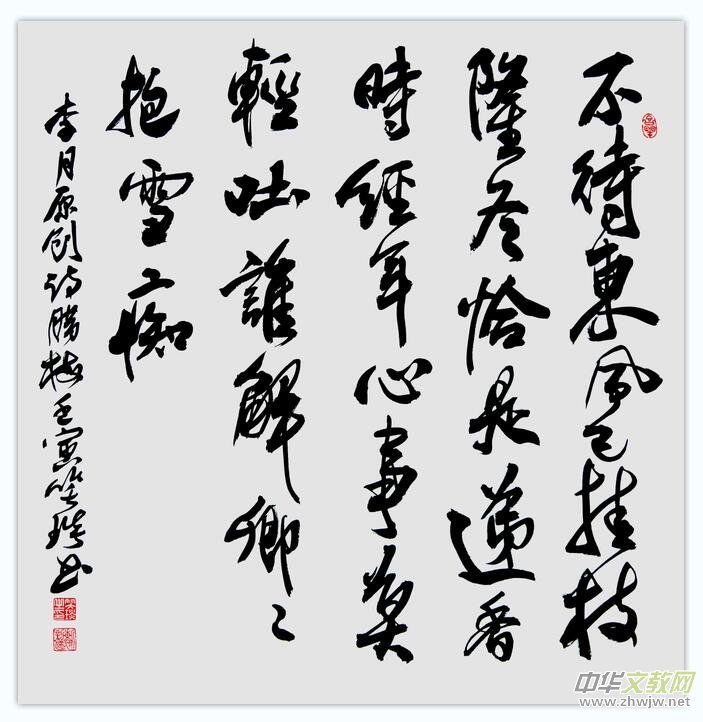 不待東風已挂枝
隆冬恰是遞香
時經年心事莫
輕吐誰解卿々
抱雪痴
李月原创诗腊梅壬寅笑书
中华文教网
www.zhwjw.net